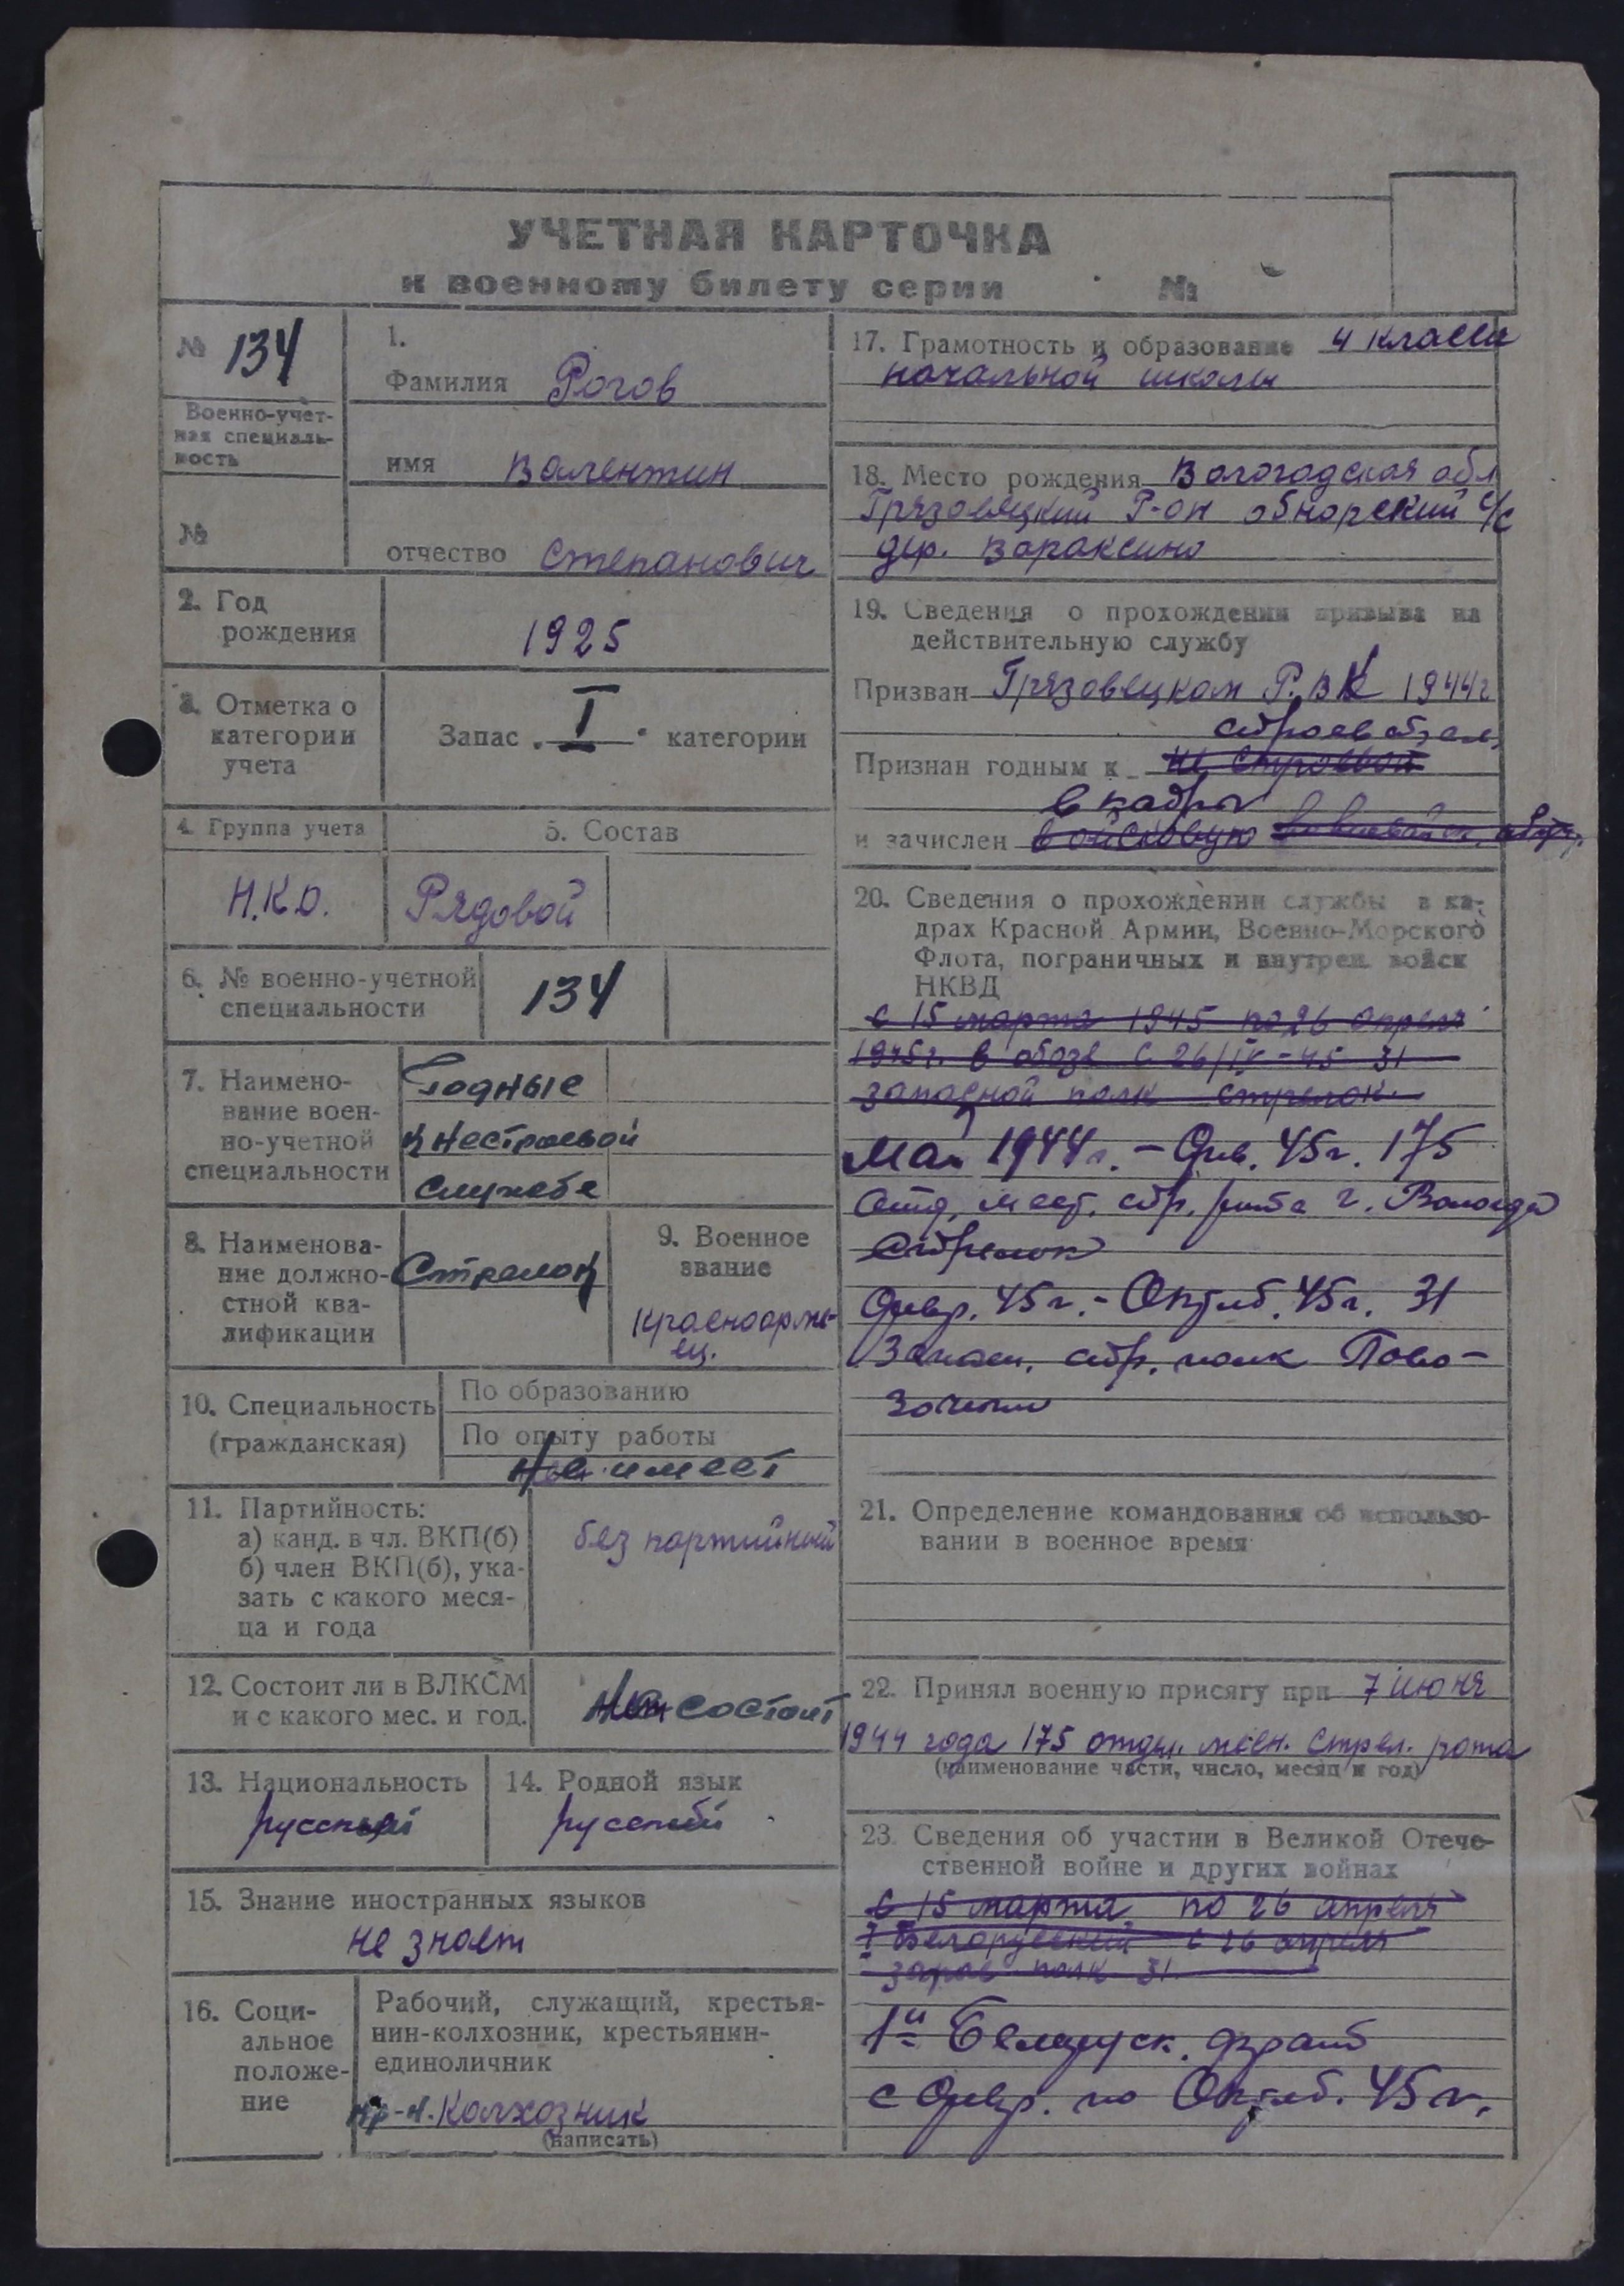 УЧЕТНАЯ КАРТОЧКА
к военному билету серии №
№ 134
Военно-учет-
ная специаль-
ность
№
1.
Фамилия Рогов
имя Валентин
отчество Степанович
2. Год
рождения
1925
3. Отметка о
категории
учета
Запас „I“ категории
4. Группа учета
5. Состав
Н.К.О.
Рядовой
6. № военно-учетной
специальности
134
7. Наимено-
вание воен-
но-учетной
специальности
Годные
к нестроевой
службе
8. Наименова-
ние должно-
стной ква-
лификации
Стрелок
9. Военное
звание
Красноарме-
ец.
10. Специальность
(гражданская)
По образованию
По опыту работы
Не имеет
11. Партийность:
а) канд. в чл. ВКП(б)
б) член ВКП(б), ука-
зать с какого меся-
ца и года
без партийный
12. Состоит ли в ВЛКСМ
и с какого мес. и год.
состоит
13. Национальность
русский
14. Родной язык
русский
15. Знание иностранных языков
не знает
16. Соци-
альное
положе-
ние
Рабочий, служащий, крестья-
нин-колхозник, крестьянин-
единоличник
кр-н. Колхозник
(написать)
17. Грамотность и образование 4 класса
начальной школы
18. Место рождения Вологодская обл
Грязовецкий Р-он обнорский с/с
дер. Вараксино
19. Сведения о прохождении призыва на
действительную службу
Призван Грязовецким Р.ВК 1944г
Признан годным к не строевой
в кадры
и зачислен войсковую
20. Сведения о прохождении службы в ка-
драх Красной Армии, Военно-Морского
Флота, пограничных и внутрен. войск
НКВД
с 15 марта 1945 по 26 апреля
1945г. в обозе с 26/IV-45 31
запасной полк стрелок.
Май 1944г. – Янв. 45г. 175
Отд. мест. стр. рота г. Вологда
Стрелок
Февр. 45г. – Октяб. 45г. 31
Запасн. стр. полк Пово-
зочный
21. Определение командования об использо-
вании в военное время
22. Принял военную присягу при 7 июня
1944 года 175 отдел. месн. стрел. рота
(наименование части, число, месяц и год)
23. Сведения об участии в Великой Отече-
ственной войне и других войнах
с 15 марта по 26 апреля
I Белорусский с 26 апреля
запас полк 31
1й Белорусск. фронт
с Февр. по Октяб. 45 г.